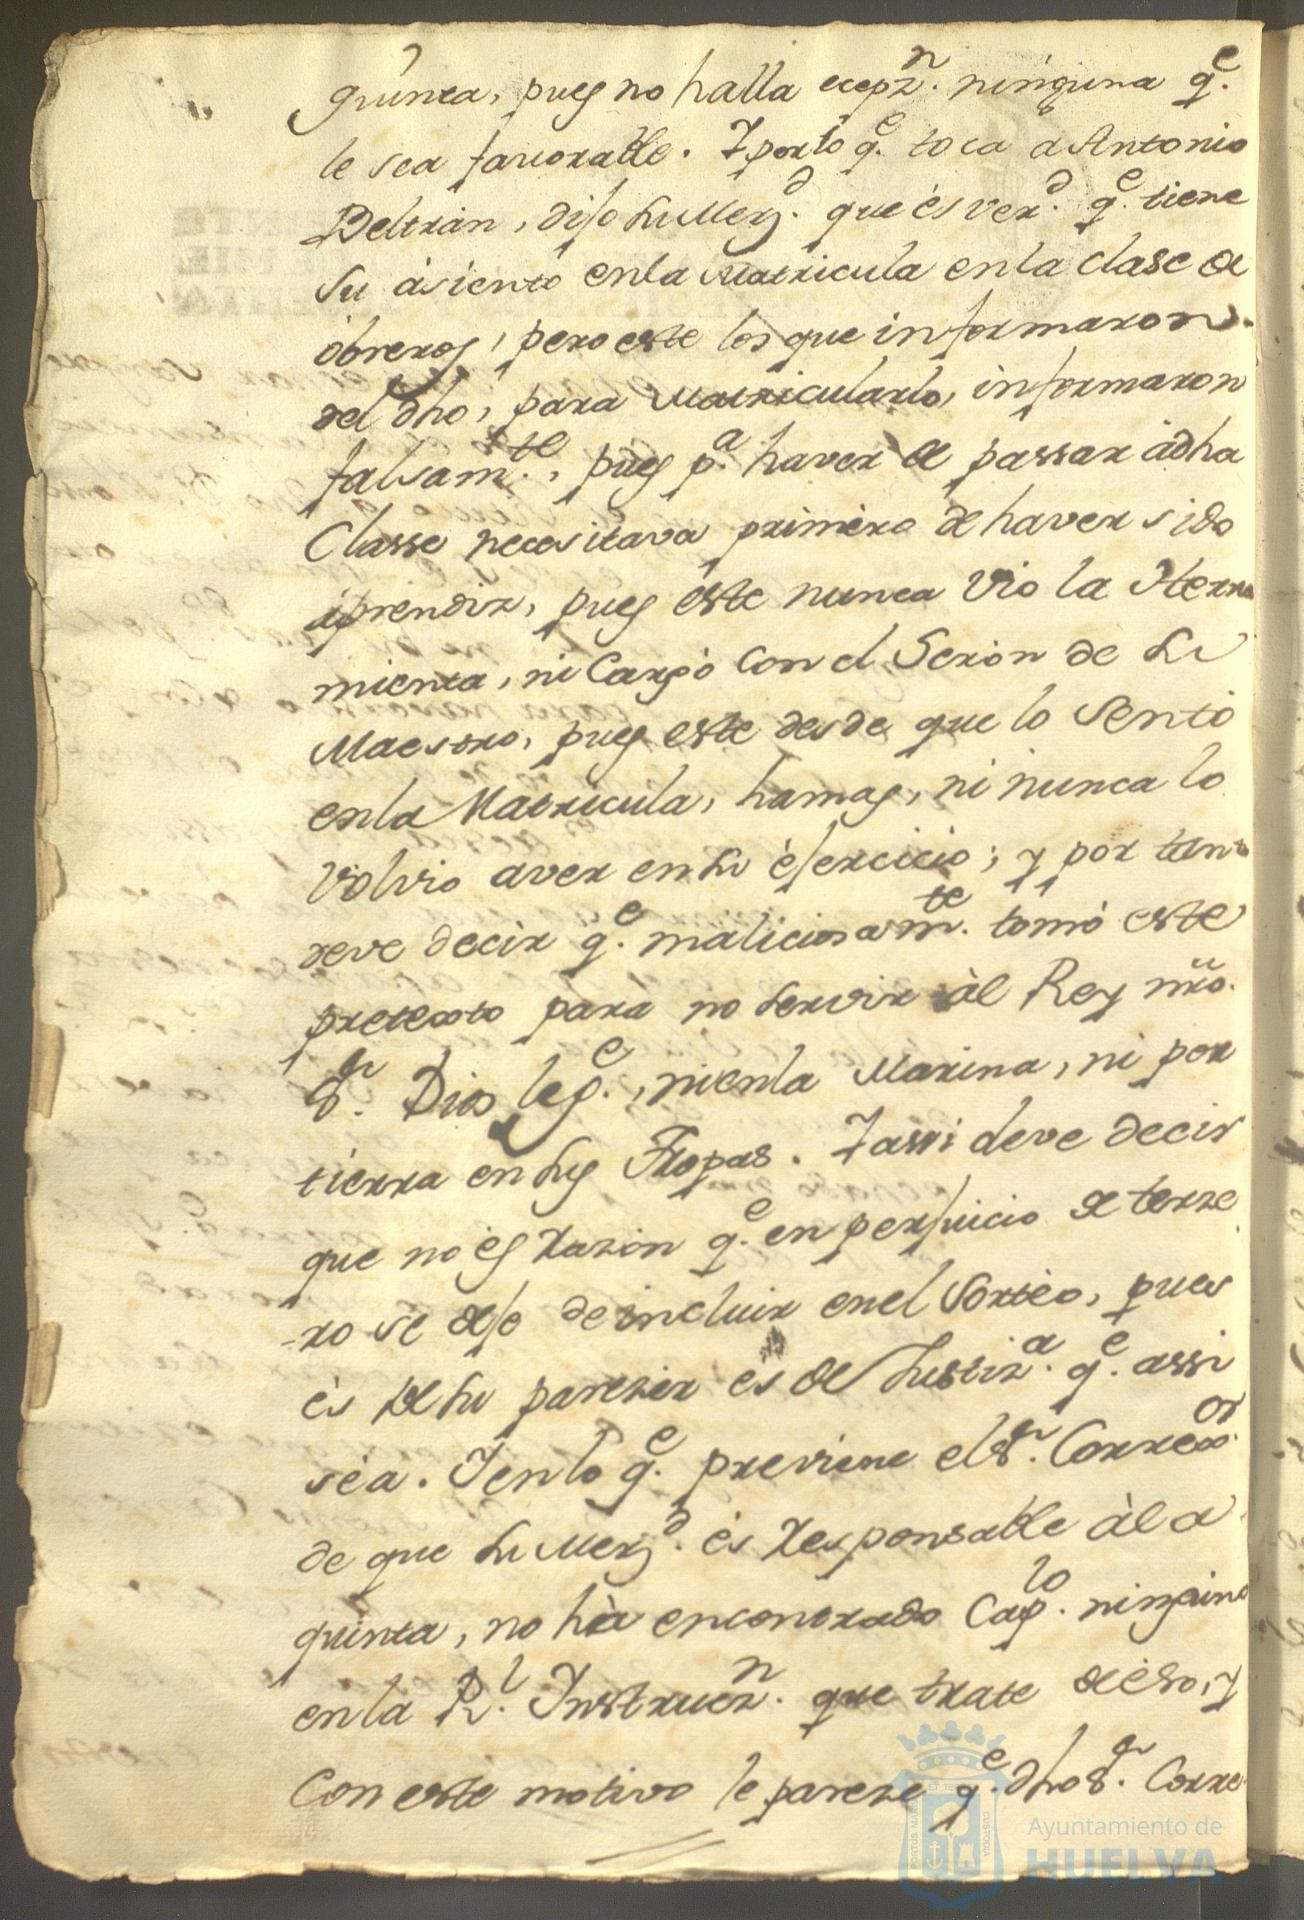 quinta, pues no halla ecepzn. ninguna qe.
le sea favorable. Y por lo qe. toca a Antonio
Beltrán, dijo su Merzd. que és verd. qe. tiene
su ásiento en la Matricula en la clase de
óbreros, pero este los que informaron
del dho, para Matricularlo, informaron
falsamte., pues pa. haver de passar ádha
Classe necesitava primero de haver sido
áprendiz, pues éste nunca vio la Herra
mienta, ni Cargó con el Serón de su
Maestro, pues este desde que lo sentó
en la Matricula, hamas, ni nunca lo
volvio aver en su éjercicio; y por tanto
deve decir qe. maliciosamte. tomó este
pretexto para no servir àl Rey nro.
Sr. Dios lege., ni en la Marina, ni por
tierra en sus Tropas. Y assi deve decir
que no és razón qe. en perjuicio de terze
ro se deje de incluir en el Sortéo, pues
és de su parezer és de Justiza. qe. assi
séa. Y en lo qe. previene el Sr. Correxor.
de que su Merzd. és responsable àl a
quinta, no hà encontrado Caplo. ninguno
en la Rl. Instruczn. que trate de éso, y
Con este motivo le pareze qe. dho Sr. Corre
Ayuntamiento de
HUELVA